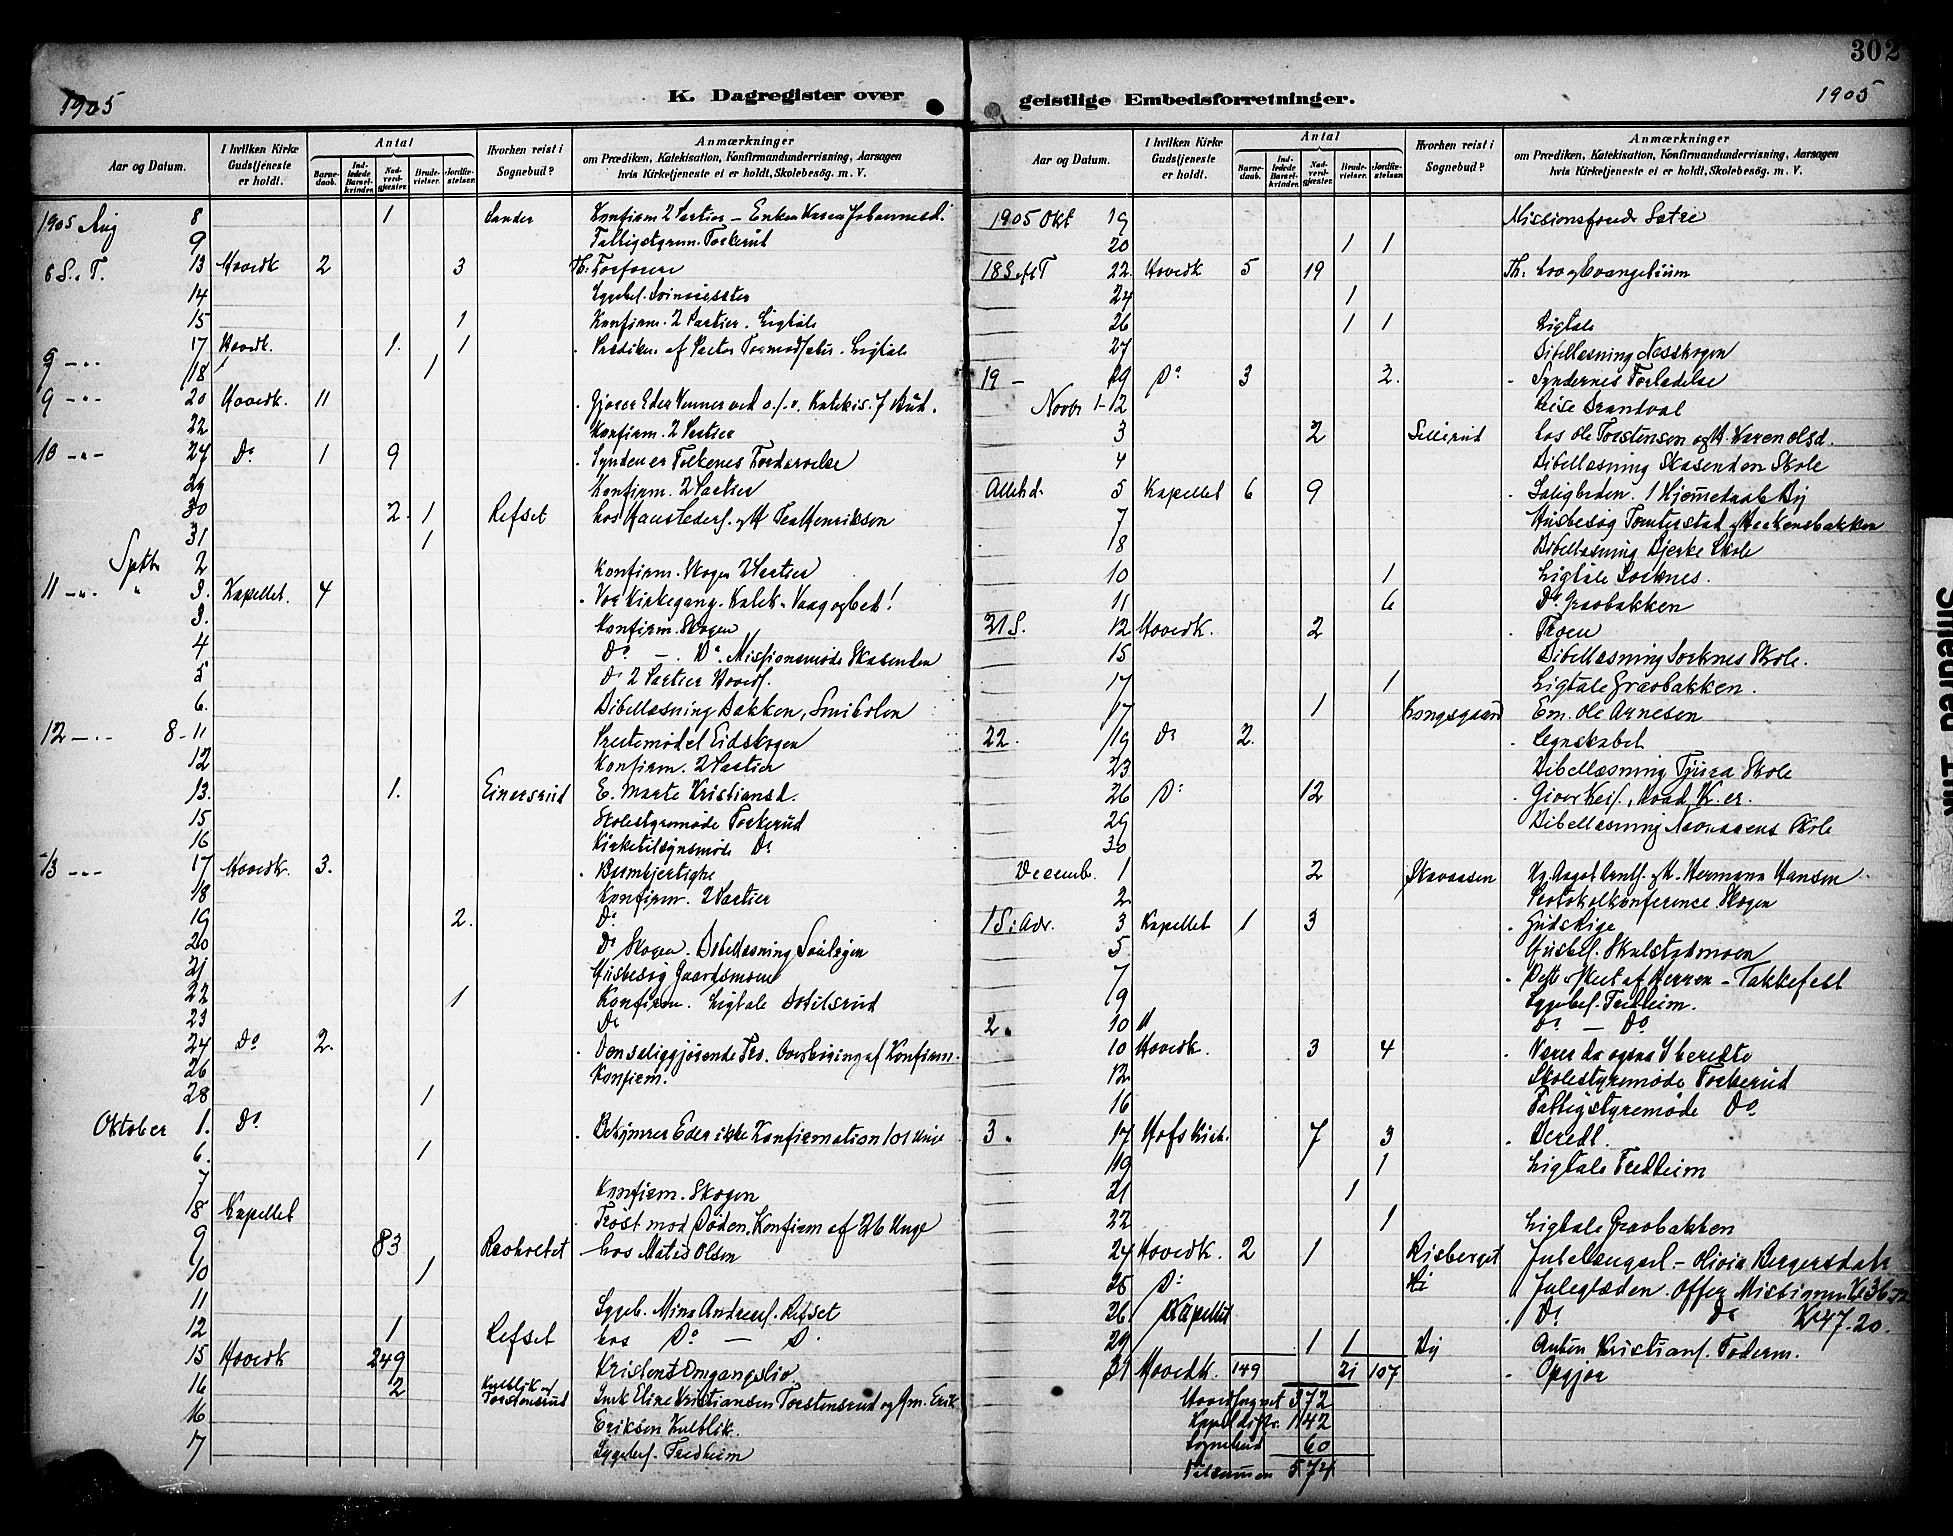 302
1905
K. Dagregister over
geistlige Embedsforretninger.
1905
Aar og Datum.
I hvilken Kirke Gudstjeneste er holdt.
Antal
Barnedaab.
Indledede Barselkvinder.
Nadverdgjæster.
Brudevielser.
Jordfæstelser.
Hvorhen reist i Sognebud?
Anmærkninger
om Prædiken, Katekisation, Konfirmandundervisning, Aarsagen
hvis Kirketjeneste ei er holdt, Skolebesøg. m. V.
1905 Aug 8 1 Sander Konfirm 2 Partier - Enken Karen Johannesd.
9 Fattigstyrem. Torkerud
6 S. e. T. 13 Hovedk 2 3
14 Sygebes.
15 1 Konfirm. 2 Partier. Ligtale
17 Hovedk. 1. 1 Prædiken af Pastor - Ligtale
9 -"- 18 1
9 -"- 20 Hovedk. 11 Gjører Eder Venner ved o.s.v. Katekis. 7 Bud.
22 Konfirm. 2 Partier
10 -"- 27 Do 1 9 Synden er Folkenes Fordærvelse
29 Konfirm. 2 Partier
30 2. 1 Refset hos
31 1
Septb 2 Konfirm. Skogen 2 Partier
11 -"- " 3. Kapellet. 4 Vor Kirkegang. Katek. Vaag og bed!
3. Konfirm. Skogen
4 Do - Do. Missionsmøde Skasenden
5 Do 2 Partier Hoveds.
6. Bibellæsning Bakken, Smiholen
12 -"- 8-11 Prestemødet Eidskogen
12 Konfirm. 2 Partier
13. 1. Einersrud E. Marte Kristiansd.
15 Skolestyremøde Torkerud
16 Kirketilsynsmøde Do
13 -"- 17 Hovedk. 3. Barmhjertighe
18 Konfirm. 2 Partier
19 2. Do
20 Do Skogen. Bibellæsning
21 Husbesøg Gaardsmoen
22 1 Konfirm. Ligtale
23 Do
24 Do 2. Den saliggjørende Tro. Overhøring af Konfirm.
26 Konfirm.
28 1
Oktober 1. Do Bekymrer Eder ikke Konfirmation 101 Unge
6. 1
7 Konfirm. Skogen
8 Kapellet Trøst mod Døden. Konfirm af 26 Unge
9 83 hos Matis Olsen
10 1
11 Sygeb. Mina Andreas. Refset
12 1 Refset hos Do - D.
15 Hovedk 249 Kristent Omgangsliv
16 2 Kulblik og Torstensrud Enk. Eline Kristiansen Torstensrud og Gm. Erik
16 Eriksen Kulblik.
17 Sygebes. Fredheim
Aar og Datum.
I hvilken Kirke Gudstjeneste er holdt.
Antal
Barnedaab.
Indledede Barselkvinder.
Nadverdgjæster.
Brudevielser.
Jordfæstelser.
Hvorhen reist i Sognebud?
Anmærkninger
om Prædiken, Katekisation, Konfirmandundervisning, Aarsagen
hvis Kirketjeneste ei er holdt, Skolebesøg. m. V.
1905 Okt 19 Missionsforeds Sætre
20 1 1
18 S. ef T 22. Hovedk 5 19 Th: Lov og Evangelium
24 1
26 1 1 Ligtale
27 Bibellæsning Næsskogen
19 - 29 Do 3 2. Syndernes Forladelse
Novbr 1-12 Reise Brandval
3 2 Sillerud hos Ole Torstensen og H. Karen Olsd.
4 Bibellæsning Skasenden Skole
Alleh d. 5 Kapellet 6 9 Saligheden. 1 Hjemmedaab By
7 Husbesøg Tomterstad og Haakensbakken
8 Bibellæsning Bjerke Skole
10 1 Ligtale Sorknes.
11 6 Do Graobakken
21 S. 12 Hovedk. 2 Troen
15 Bibellæsning Sorknes Skole.
17 1 Ligtale Graobakken.
17 1 Kongsgaard Em. Ole Arnesen
22. 19 Do 2. Regnskabet
23 Bibellæsning Tjura Skole
26 Do 12 Giver Keis., hvad K. er.
29 Bibellæsning Skole
30
Decemb. 1 2 Skavaasen Hermann Hansen
2 Protokolkonference Skogen
1 S. i Adv. 3 Kapellet 1 3 Guds Rige
5 Husbes. Skulstadmoen
7 Dette er skeet af Herren - Takkefest
9 Sygebes. Fredheim.
2 " 10 Do - Do
10 Hovedk. 3 4 Værer da ogsaa I beredte
12 Skolestyremøde Torkerud
16 Fattigstyremøde Do
3 " 17 Hofs Kirk. 7 3 Beredt.
19 1 Ligtale Fredheim
21 1
22 1 Ligtale Graobakken
24 Hovedk. 2 1 Risberget Julebudsk. - Olivia Bergersdatr
25 Do Juleglæden. Offer Missionen K 36.72
26 Kapellet Do Do K 47.20.
29 1 1 By Anton Kristians.Føderm.
31 Hovedk. 149 21 107 Opgjør
Hovedsognet 372
Kapeldistr. 142
Sognebud 60
Tilsammen 574